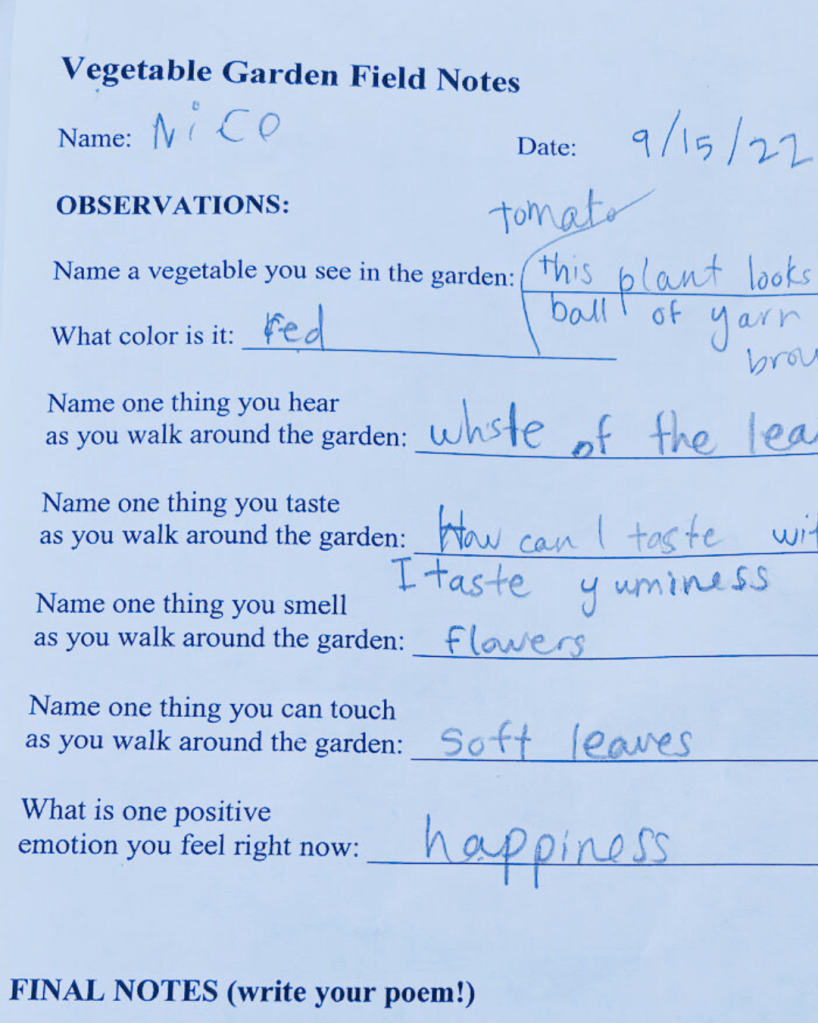 Vegetable Garden Field Notes
Name: Nico
Date: 9/15/22
OBSERVATIONS:
tomato
Name a vegetable you see in the garden: this plant looks
ball of yarn
What color is it: red
brow
Name one thing you hear
as you walk around the garden: whstle of the lea
Name one thing you taste
as you walk around the garden: How can I taste wit
I taste yuminess
Name one thing you smell
as you walk around the garden: flowers
Name one thing you can touch
as you walk around the garden: soft leaves
What is one positive
emotion you feel right now: happiness
FINAL NOTES (write your poem!)